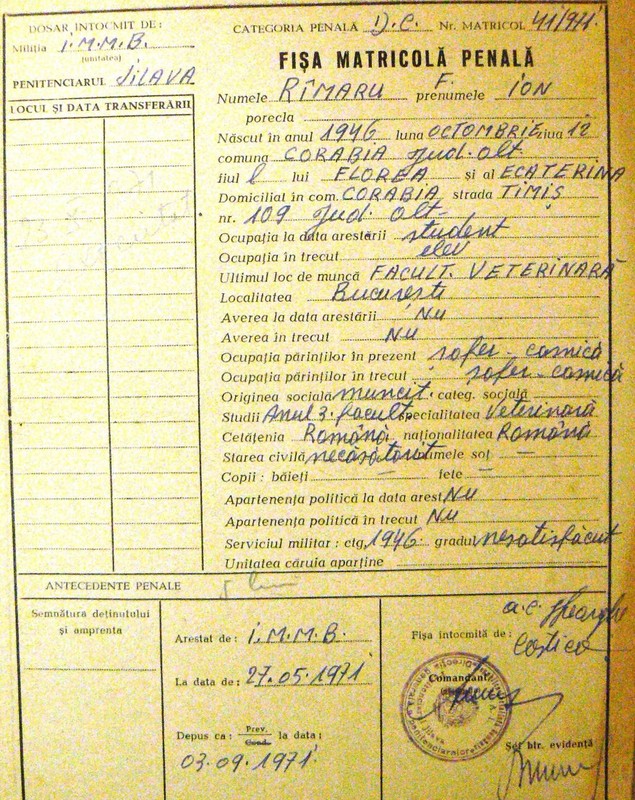 DOSAR INTOCMIT DE :
Miliția I.M.M.B.
(unitatea)
PENITENCIARUL JILAVA
LOCUL ȘI DATA TRANSFERĂRII
CATEGORIA PENALĂ D.C. Nr. MATRICOL 411/971
FIȘA MATRICOLĂ PENALĂ
Numele RÎMARU F. prenumele ION
porecla
Născut în anul 1946 luna OCTOMBRIE ziua 12
comuna CORABIA Jud. Olt
fiul l lui FLOREA și al ECATERINA
Domiciliat în com. CORABIA strada TIMIȘ
nr. 109 Jud. Olt
Ocupația la data arestării student
Ocupația în trecut elev
Ultimul loc de muncă FACULT. VETERINARĂ
Localitatea București
Averea la data arestării Nu
Averea în trecut Nu
Ocupația părinților în prezent șofer - casnică
Ocupația părinților în trecut șofer - casnică
Originea socială muncit. categ. socială
Studii Anul 3. facult. specialitatea Veterinară
Cetățenia Română naționalitatea Română
Starea civilă necăsătorit numele soț —
Copii : băieți — fete —
Apartenența politică la data arest Nu
Apartenența politică în trecut Nu
Serviciul militar : ctg. 1946 gradul nesatisfăcut
Unitatea căruia aparține
ANTECEDENTE PENALE
Semnătura deținutului
și amprenta
Arestat de : I.M.M.B.
La data de : 27.05.1971
Depus ca : Prev. Cond. la data :
03.09.1971
a.c. Gheorghe
Fișa întocmită de : Costica
Comandant,
Șef bir. evidență